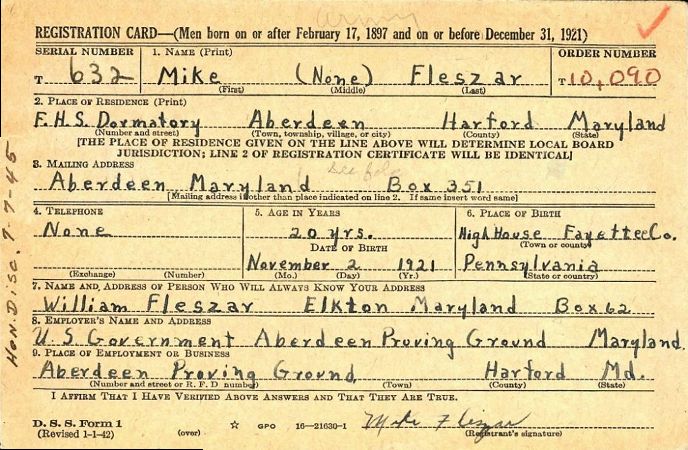 Army
REGISTRATION CARD—(Men born on or after February 17, 1897 and on or before December 31, 1921)
SERIAL NUMBER 1. NAME (Print) ORDER NUMBER
T 632 Mike (None) Fleszar T 10,090
(First) (Middle) (Last)
2. PLACE OF RESIDENCE (Print)
F.H.S. Dormatory Aberdeen Harford Maryland
(Number and street) (Town, township, village, or city) (County) (State)
[THE PLACE OF RESIDENCE GIVEN ON THE LINE ABOVE WILL DETERMINE LOCAL BOARD
JURISDICTION; LINE 2 OF REGISTRATION CERTIFICATE WILL BE IDENTICAL]
3. MAILING ADDRESS
Aberdeen Maryland Box 351
[Mailing address if other than place indicated on line 2. If same insert word same]
4. TELEPHONE 5. AGE IN YEARS 6. PLACE OF BIRTH
None 20 yrs. High House Fayette Co.
DATE OF BIRTH (Town or county)
November 2 1921 Pennsylvania
(Exchange) (Number) (Mo.) (Day) (Yr.) (State or country)
7. NAME AND ADDRESS OF PERSON WHO WILL ALWAYS KNOW YOUR ADDRESS
William Fleszar Elkton Maryland Box 62
8. EMPLOYER'S NAME AND ADDRESS
U.S Government Aberdeen Proving Ground Maryland.
9. PLACE OF EMPLOYMENT OR BUSINESS
Aberdeen Proving Ground Harford Md.
(Number and street or R. F. D number) (Town) (County) (State)
I AFFIRM THAT I HAVE VERIFIED ABOVE ANSWERS AND THAT THEY ARE TRUE.
D. S. S. Form 1
(Revised 1-1-42) (over) ☆ GPO 16—21630-1 Mike Fleszar
(Registrant's signature)
Hon Disc. 7-7-45